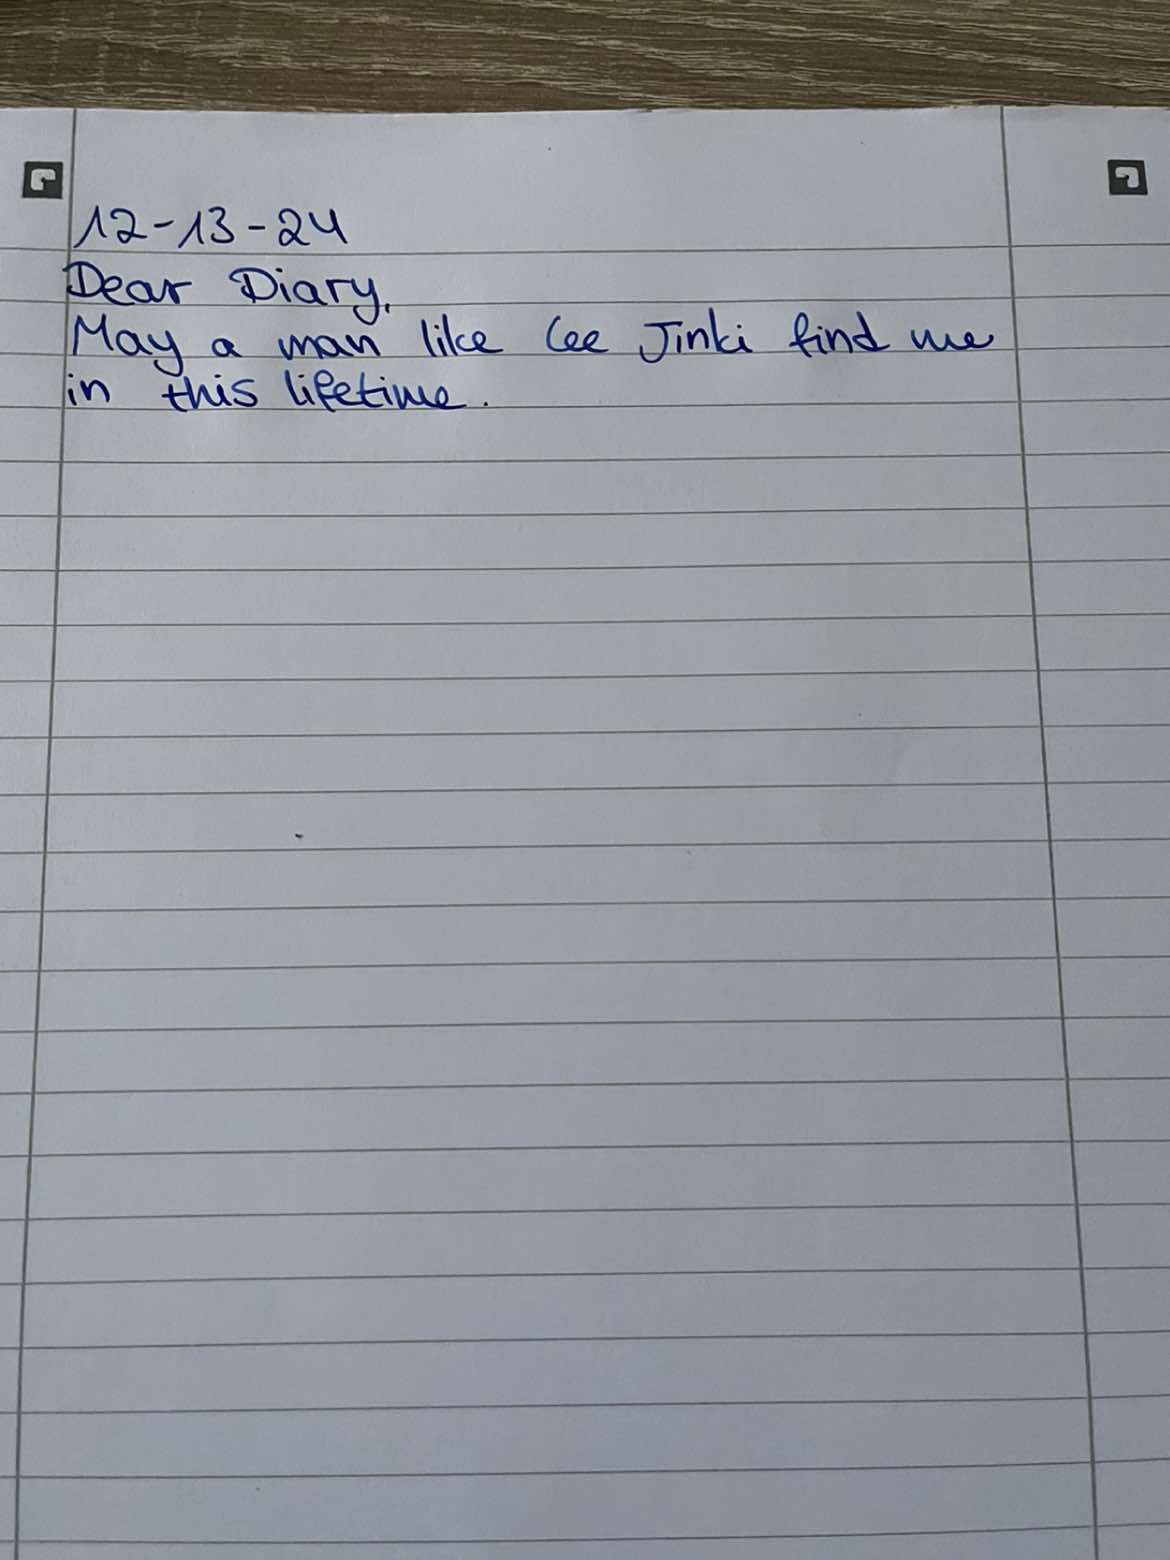 12-13-24
Dear Diary,
May a man like Lee Jinki find me
in this lifetime.